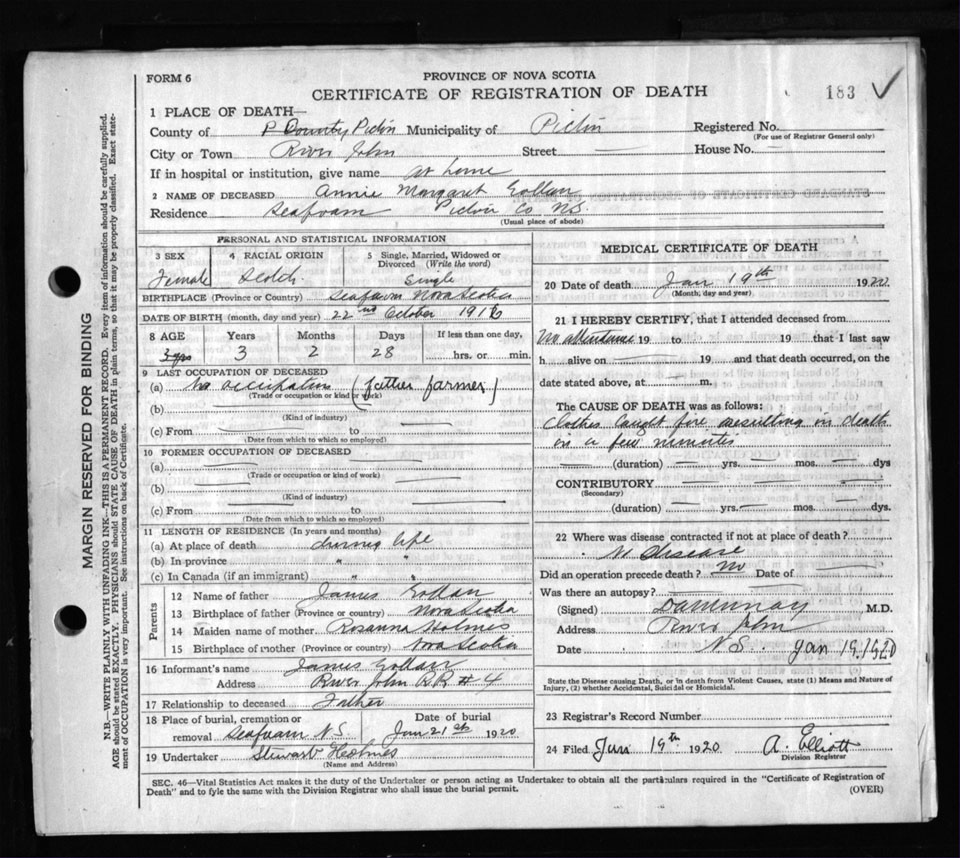 FORM 6
PROVINCE OF NOVA SCOTIA
CERTIFICATE OF REGISTRATION OF DEATH
183 ✓
1 PLACE OF DEATH—
County of P County Pictou Municipality of Pictou Registered No.
(For use of Registrar General only)
City or Town River John Street — House No. —
If in hospital or institution, give name at home
2 NAME OF DECEASED Annie Margaret Gollan
Residence Seafoam Pictou Co N.S.
(Usual place of abode)
PERSONAL AND STATISTICAL INFORMATION
3 SEX 4 RACIAL ORIGIN 5 Single, Married, Widowed or Divorced (Write the word)
Female Scotch Single
BIRTHPLACE (Province or Country) Seafoam Nova Scotia
DATE OF BIRTH (month, day and year) 22nd October 1916
8 AGE Years Months Days If less than one day,
3 yrs 3 2 28 hrs. or min.
9 LAST OCCUPATION OF DECEASED
(a) No occupation (father farmer)
(Trade or occupation or kind of work)
(b)
(Kind of industry)
(c) From — to —
(Date from which to which so employed)
10 FORMER OCCUPATION OF DECEASED
(a) —
(Trade or occupation or kind of work)
(b) —
(Kind of industry)
(c) From — to
(Date from which to which so employed)
11 LENGTH OF RESIDENCE (In years and months)
(a) At place of death during life
(b) In province " "
(c) In Canada (if an immigrant) " "
Parents
12 Name of father James Gollan
13 Birthplace of father (Province or country) Nova Scotia
14 Maiden name of mother Rosanna Holmes
15 Birthplace of mother (Province or country) Nova Scotia
16 Informant's name James Gollan
Address River John RR #4
17 Relationship to deceased Father
18 Place of burial, cremation or removal Seafoam N.S. Date of burial Jan 21st 1920
19 Undertaker Stewart Holmes
(Name and Address)
MEDICAL CERTIFICATE OF DEATH
20 Date of death Jan 19th 1920
(Month, day and year)
21 I HEREBY CERTIFY, that I attended deceased from
No attendance 19 to 19 that I last saw
h alive on — 19 and that death occurred, on the
date stated above, at — m.
The CAUSE OF DEATH was as follows:
Clothes caught fire resulting in death
in a few minutes
— (duration) — yrs. — mos. — dys
CONTRIBUTORY — — —
(Secondary)
(duration) — yrs. — mos. — dys.
22 Where was disease contracted if not at place of death?
No disease
Did an operation precede death? No Date of —
Was there an autopsy? —
(Signed) M.D.
Address River John
Date N.S. Jan 19, 1920
State the Disease causing Death, or in death from Violent Causes, state (1) Means and Nature of
Injury, (2) whether Accidental, Suicidal or Homicidal.
23 Registrar's Record Number
24 Filed Jan 19th 1920 A. Elliott
Division Registrar
SEC. 46—Vital Statistics Act makes it the duty of the Undertaker or person acting as Undertaker to obtain all the particulars required in the "Certificate of Registration of
Death" and to fyle the same with the Division Registrar who shall issue the burial permit. (OVER)
MARGIN RESERVED FOR BINDING
N.B.—WRITE PLAINLY WITH UNFADING INK—THIS IS A PERMANENT RECORD. Every item of information should be carefully supplied.
AGE should be stated EXACTLY. PHYSICIANS should STATE CAUSE OF DEATH in plain terms, so that it may be properly classified. Exact state-
ment of OCCUPATION is very important. See instructions on back of Certificate.